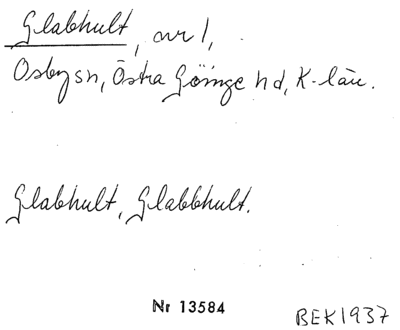 Glabhult, nr 1,
Osby sn, Östra Göinge hd, K-län.
Glabhult, Glabbhult.
Nr 13584
BEK1937